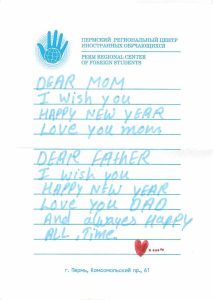 ПЕРМСКИЙ РЕГИОНАЛЬНЫЙ ЦЕНТР
ИНОСТРАННЫХ ОБУЧАЮЩИХСЯ
PERM REGIONAL CENTER
OF FOREIGN STUDENTS
DEAR MOM
I wish you
HAPPY NEW YEAR
Love you mom
DEAR FATHER
I wish you
HAPPY NEW YEAR
Love you DAD
And always HAPPY
ALL, Time.
г. Пермь, Комсомольский пр., 61